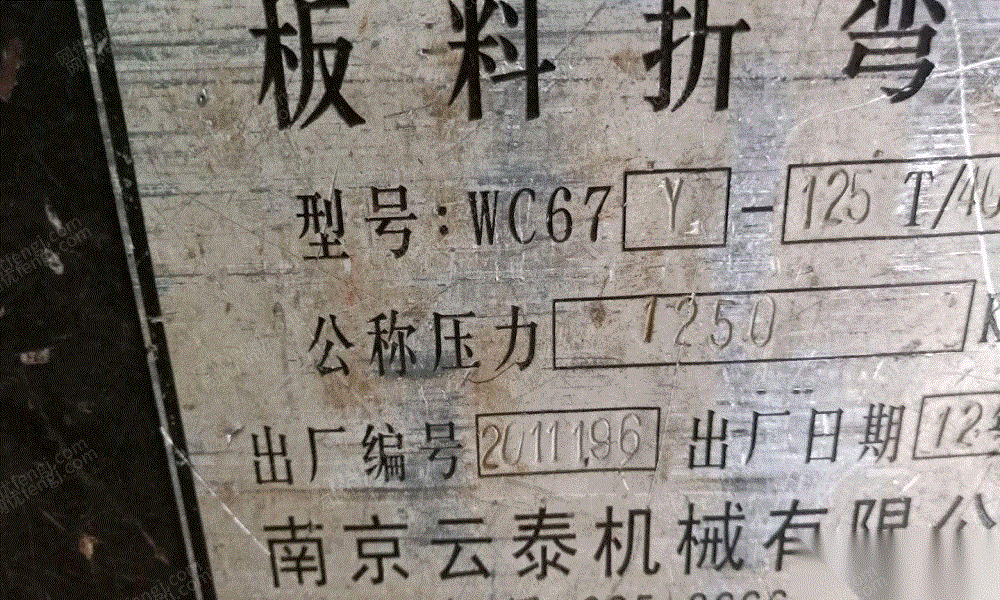 板料折弯
型号:WC67 Y - 125 T/40
公称压力 1250 K
出厂编号 2011196 出厂日期 12
南京云泰机械有限公